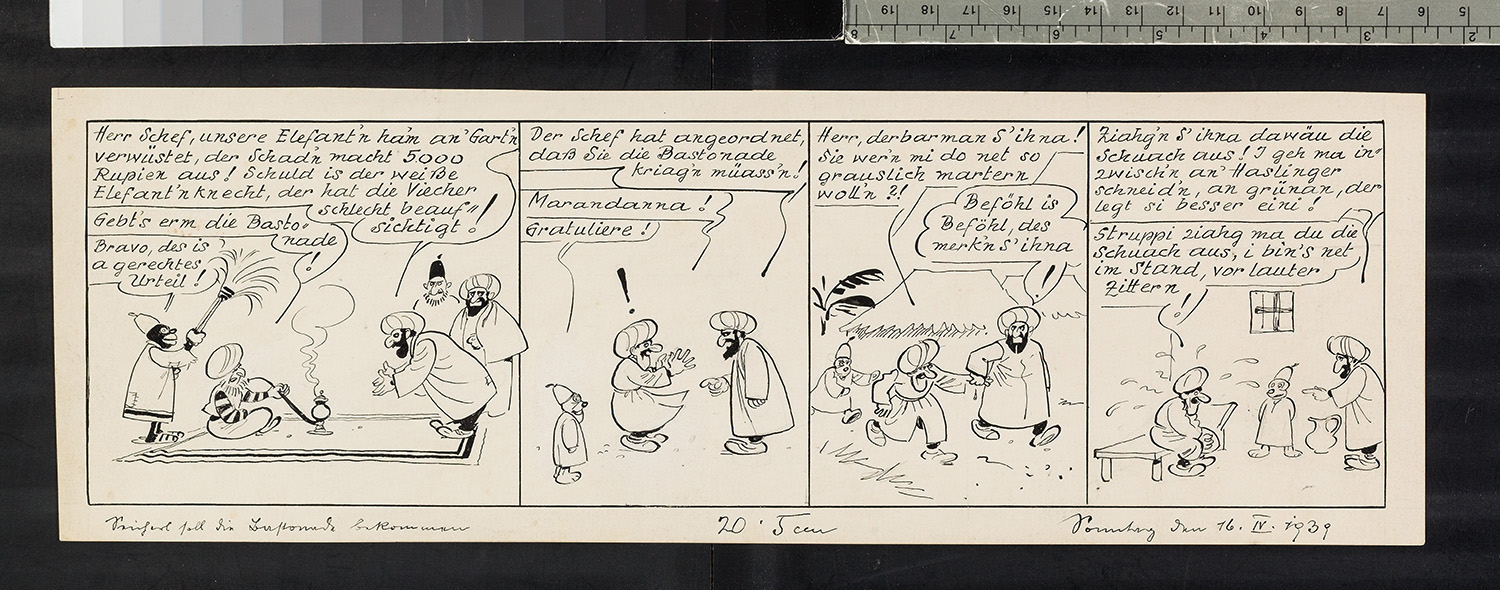 Herr Schef, unsere Elefant'n ha'm an' Gart'n
verwüstet, der Schad'n macht 5000
Rupien aus! Schuld is der weiße
Elefant'nknecht, der hat die Viecher
schlecht beauf"
sichtigt!
Gebt's erm die Basto-
nade
!
Bravo, des is
a gerechtes
Urteil!
Der Schef hat angeordnet,
daß Sie die Bastonade
kriag'n müass'n!
Marandanna!
Gratuliere!
!
Herr, derbarman S' ihna!
Sie wer'n mi do net so
grauslich martern
woll'n?!
Beföhl is
Beföhl, des
merk'n S' ihna
!
Ziahg'n S' ihna dawäu die
Schuach aus! I geh ma in"
zwisch'n an' Haslinger
schneid'n, an grünan, der
legt si besser eini!
Struppi ziahg ma du die
Schuach aus, i bin's net
im Stand, vor lauter
Zittern
!
Seicherl soll die Bastonade bekommen
20·5 cm
Sonntag den 16. IV. 1939
19 18 17 16 15 14 13 12 11 10 9 8 7 6 5
8 7 6 5 4 3 2